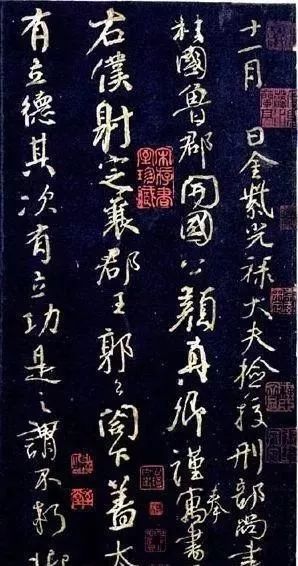 十一月 日金紫光祿大夫檢挍刑部尚書
柱國魯郡開國公顏真卿謹奉寓書
右僕射定襄郡王郭公閤下蓋太
有立德其次有立功是之謂不朽抑
宋存書室珍藏